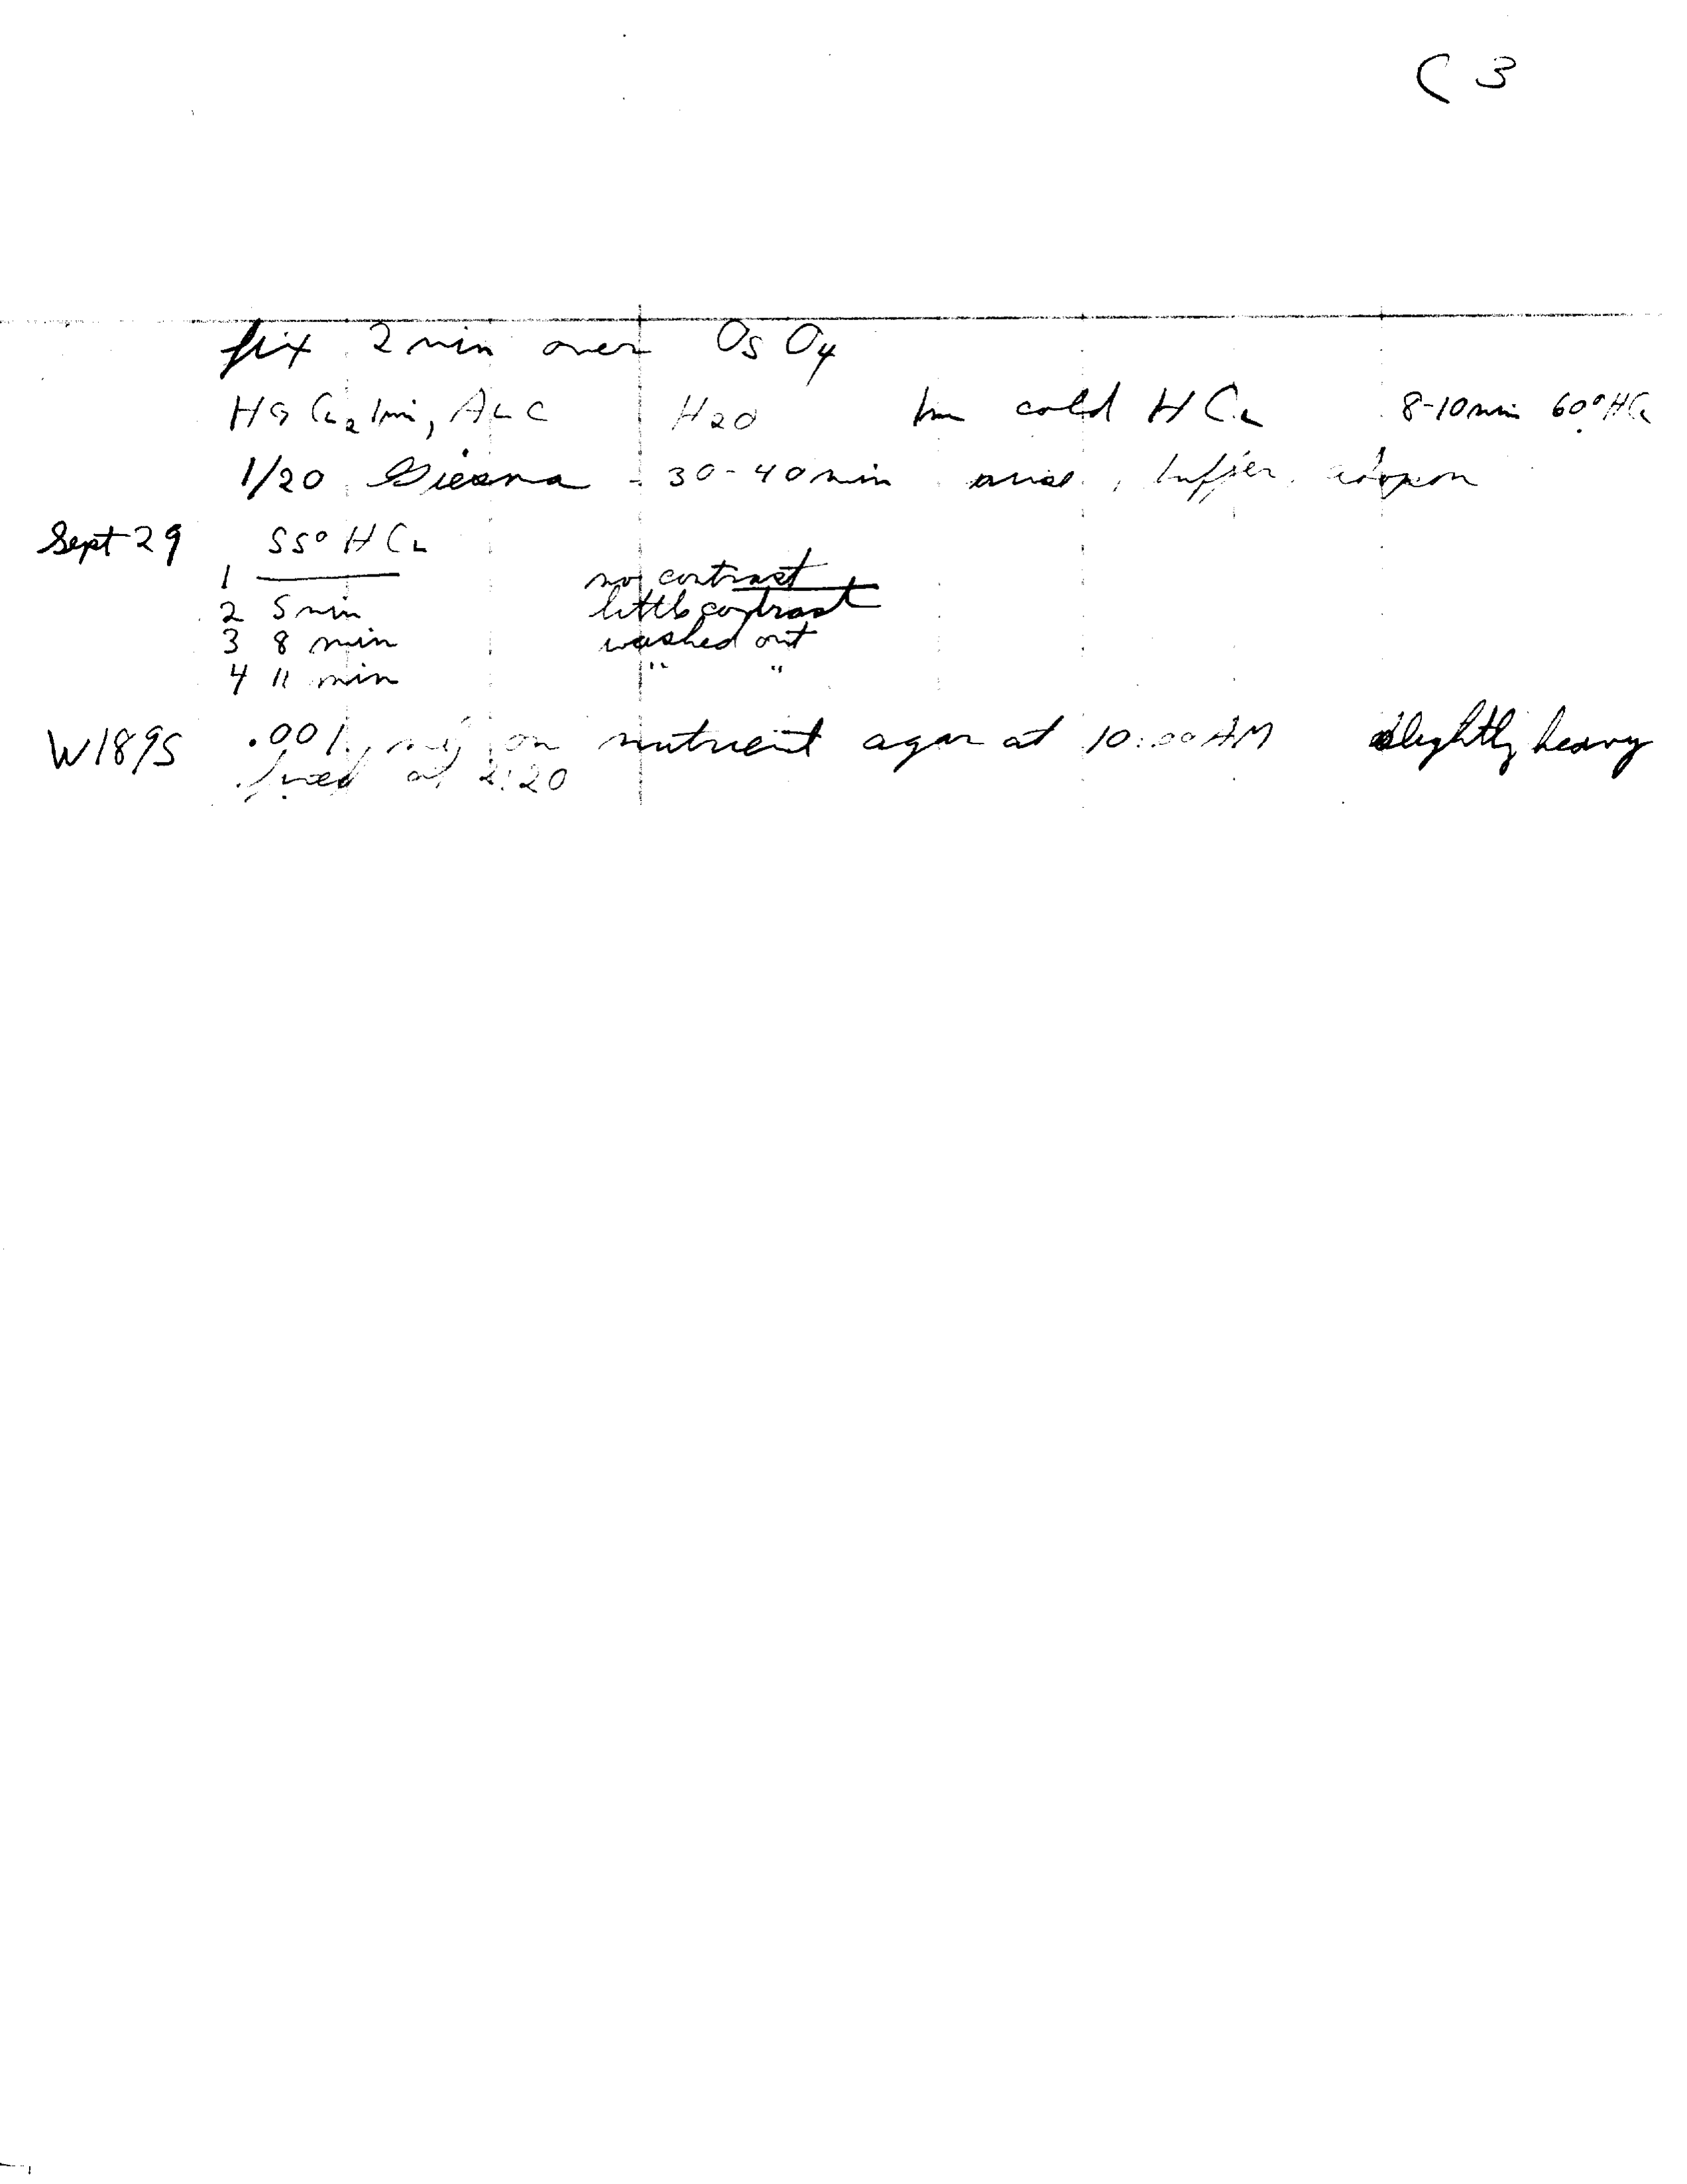 C 3
fix 2 min over OsO4
HgCl2 1 min, Alc H2O 1m cold HCl 8-10 min 60° HCl
1/20 Giemsa - 30-40 min rinse, buffer,
Sept 29 55° HCl
1 —— no contrast
2 5 min little contrast
3 8 min washed out
4 11 min " "
W1895 .001 on nutrient agar at 10:00 AM slightly heavy
fixed at 2:20